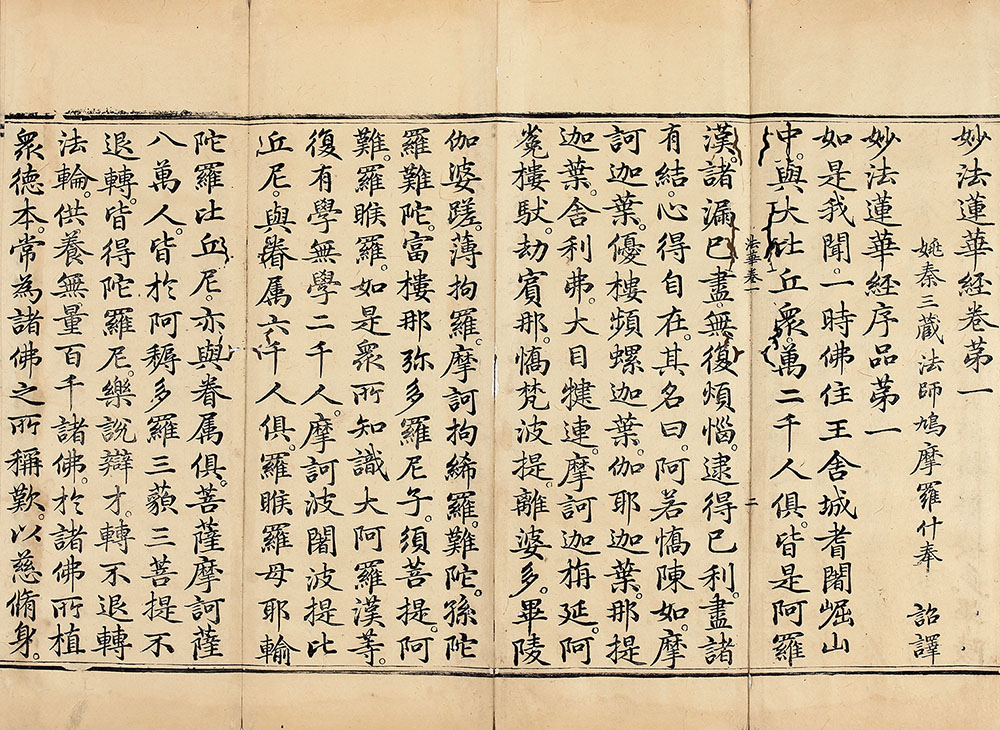 妙法蓮華經卷苐一
姚秦三藏法師鳩摩羅什奉 詔譯
妙法蓮華經序品苐一
如是我聞。一時佛住王舍城耆闍崛山
中。與大比丘衆。萬二千人俱。皆是阿羅
法華卷一 二
漢。諸漏已盡。無復煩惱。逮得已利。盡諸
有結。心得自在。其名曰。阿若憍陳如。摩
訶迦葉。優樓頻螺迦葉。伽耶迦葉。那提
迦葉。舍利弗。大目犍連。摩訶迦旃延。阿
㝹樓馱。劫賓那。憍梵波提。離婆多。畢陵
伽婆蹉。薄拘羅。摩訶拘絺羅。難陀。孫陀
羅難陀。富樓那弥多羅尼子。須菩提。阿
難。羅睺羅。如是衆所知識大阿羅漢等。
復有學無學二千人。摩訶波闍波提比
丘尼。與眷属六千人俱。羅睺羅母耶輸
陀羅比丘尼。亦與眷属俱。菩薩摩訶薩
八萬人。皆於阿耨多羅三藐三菩提不
退轉。皆得陀羅尼。樂說辯才。轉不退轉
法輪。供養無量百千諸佛。於諸佛所植
衆德本。常為諸佛之所稱歎。以慈脩身。